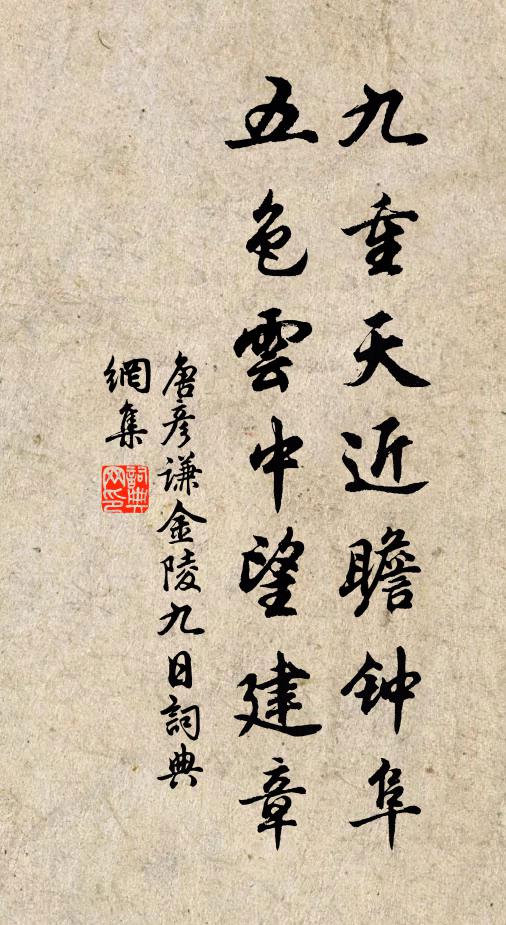 九重天近瞻钟阜
五色雲中望建章
唐彦谦金陵九日詞典
網集
詞典網印